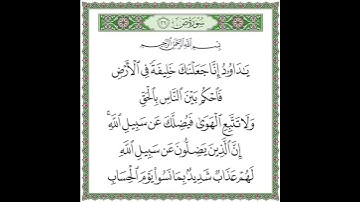 سورة ص: (٢٦)
بسم الله الرحمن الرحيم
يَٰدَاوُۥدُ إِنَّا جَعَلْنَٰكَ خَلِيفَةً فِى ٱلْأَرْضِ
فَٱحْكُم بَيْنَ ٱلنَّاسِ بِٱلْحَقِّ
وَلَا تَتَّبِعِ ٱلْهَوَىٰ فَيُضِلَّكَ عَن سَبِيلِ ٱللَّهِ ۚ
إِنَّ ٱلَّذِينَ يَضِلُّونَ عَن سَبِيلِ ٱللَّهِ
لَهُمْ عَذَابٌ شَدِيدٌۢ بِمَا نَسُوا۟ يَوْمَ ٱلْحِسَابِ